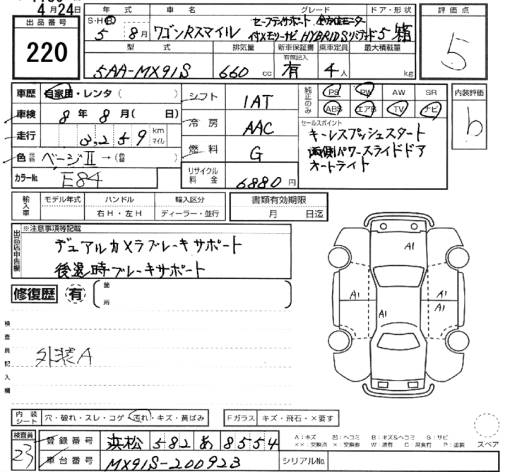 4月24日
出品番号
220
年式 車名 グレード ドア・形状
S・H 5 8月 ワゴンRスマイル セーフティサポート 全方位モニター
HYBRID S 5 箱
型式 排気量 新車保証書 乗車定員 最大積載量
5AA-MX91S 660cc 有 4人 kg
評価点
5
車歴 自家用・レンタ( )
車検 8年8月( 日)
走行 3,259 km マイル
色 ベージュII →(色替 )
カラーNo. E84
シフト 1AT
冷房 AAC
燃料 G
リサイクル料金 6880円
純正のみ
PS PW AW SR
ABS エアB TV ナビ
内装評価
b
セールスポイント
キーレスプッシュスタート
両側パワースライドドア
オートライト
輸入車
モデル年式 ハンドル 輸入区分
年 右H・左H ディーラー・並行
書類有効期限
月 日迄
出品店申告欄
※注意事項等記載
デュアルカメラブレーキサポート
後退時ブレーキサポート
修復歴 有 箇所
検査員記入欄
外装A
A1
A1
A1
A1
内装シート 穴・破れ・スレ・コゲ・汚れ・キズ・黄ばみ
Fガラス キズ・飛石・×要す
検査員
23
登録番号 浜松 582 あ 8554
車台番号 MX91S-200923
シリアルNo.
スペア